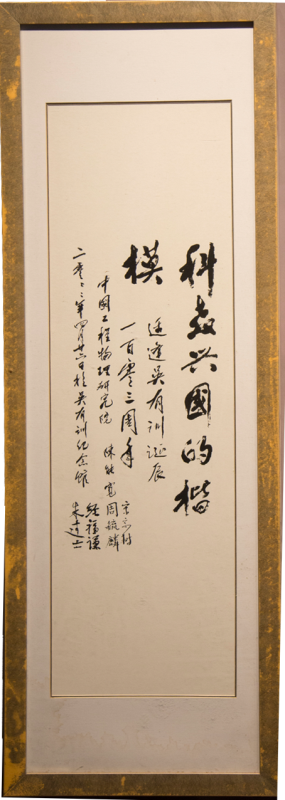 科教兴國的楷
模
适逢吴有训诞辰
一百零三周年
宋家树
中国工程物理研究院 陈能宽 周毓麟
经福谦
二零〇〇年四月廿六日於吴有训纪念馆 朱建士